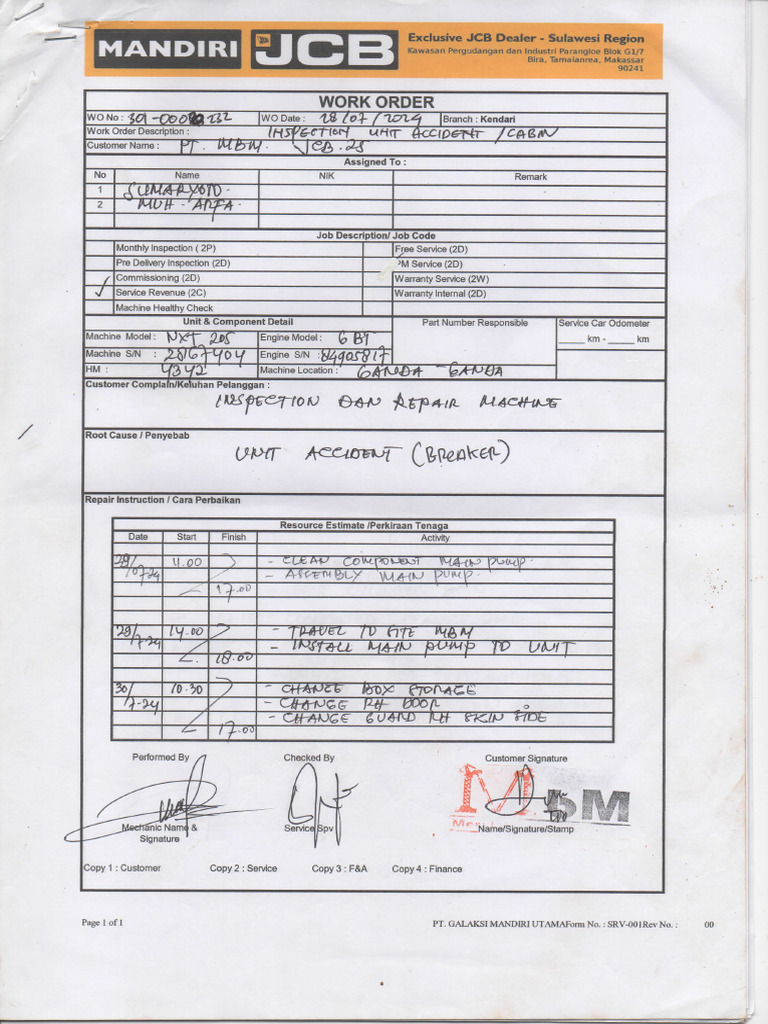 MANDIRI JCB
Exclusive JCB Dealer - Sulawesi Region
Kawasan Pergudangan dan Industri Parangloe Blok G1/7
Bira, Tamalanrea, Makassar
90241
WORK ORDER
WO No : WO Date : 28/07/2024 Branch : Kendari
Work Order Description : INSPECTION UNIT ACCIDENT / CABIN
Customer Name : PT. MBM. JCB.25
Assigned To :
No Name NIK Remark
1 SUMARYOTO.
2 MUH. ARFA.
Job Description/ Job Code
Monthly Inspection ( 2P) Free Service (2D)
Pre Delivery Inspection (2D) PM Service (2D)
Commissioning (2D) Warranty Service (2W)
✓ Service Revenue (2C) Warranty Internal (2D)
Machine Healthy Check
Unit & Component Detail Part Number Responsible Service Car Odometer
Machine Model : NXT 205 Engine Model : 6 BT _____ km - _____ km
Machine S/N : 28167404 Engine S/N : 84905817
HM : 4342 Machine Location : GANDA - GANDA
Customer Complain/Keluhan Pelanggan :
INSPECTION DAN REPAIR MACHINE
Root Cause / Penyebab
UNIT ACCIDENT (BREAKER)
Repair Instruction / Cara Perbaikan
Resource Estimate /Perkiraan Tenaga
Date Start Finish Activity
- CLEAN COMPONENT MAIN PUMP.
- ASSEMBLY MAIN PUMP.
17.00
29/ 14.00 - TRAVEL TO SITE MBM
7-24 18.00 - INSTALL MAIN PUMP TO UNIT
30/ 10.30 - CHANGE BOX STORAGE
7-24 - CHANGE RH DOOR
17.00 - CHANGE GUARD RH SKIN SIDE
Performed By Checked By Customer Signature
Mechanic Name & Service Spv Name/Signature/Stamp
Signature
Copy 1 : Customer Copy 2 : Service Copy 3 : F&A Copy 4 : Finance
Page 1 of 1 PT. GALAKSI MANDIRI UTAMAForm No. : SRV-001Rev No. : 00